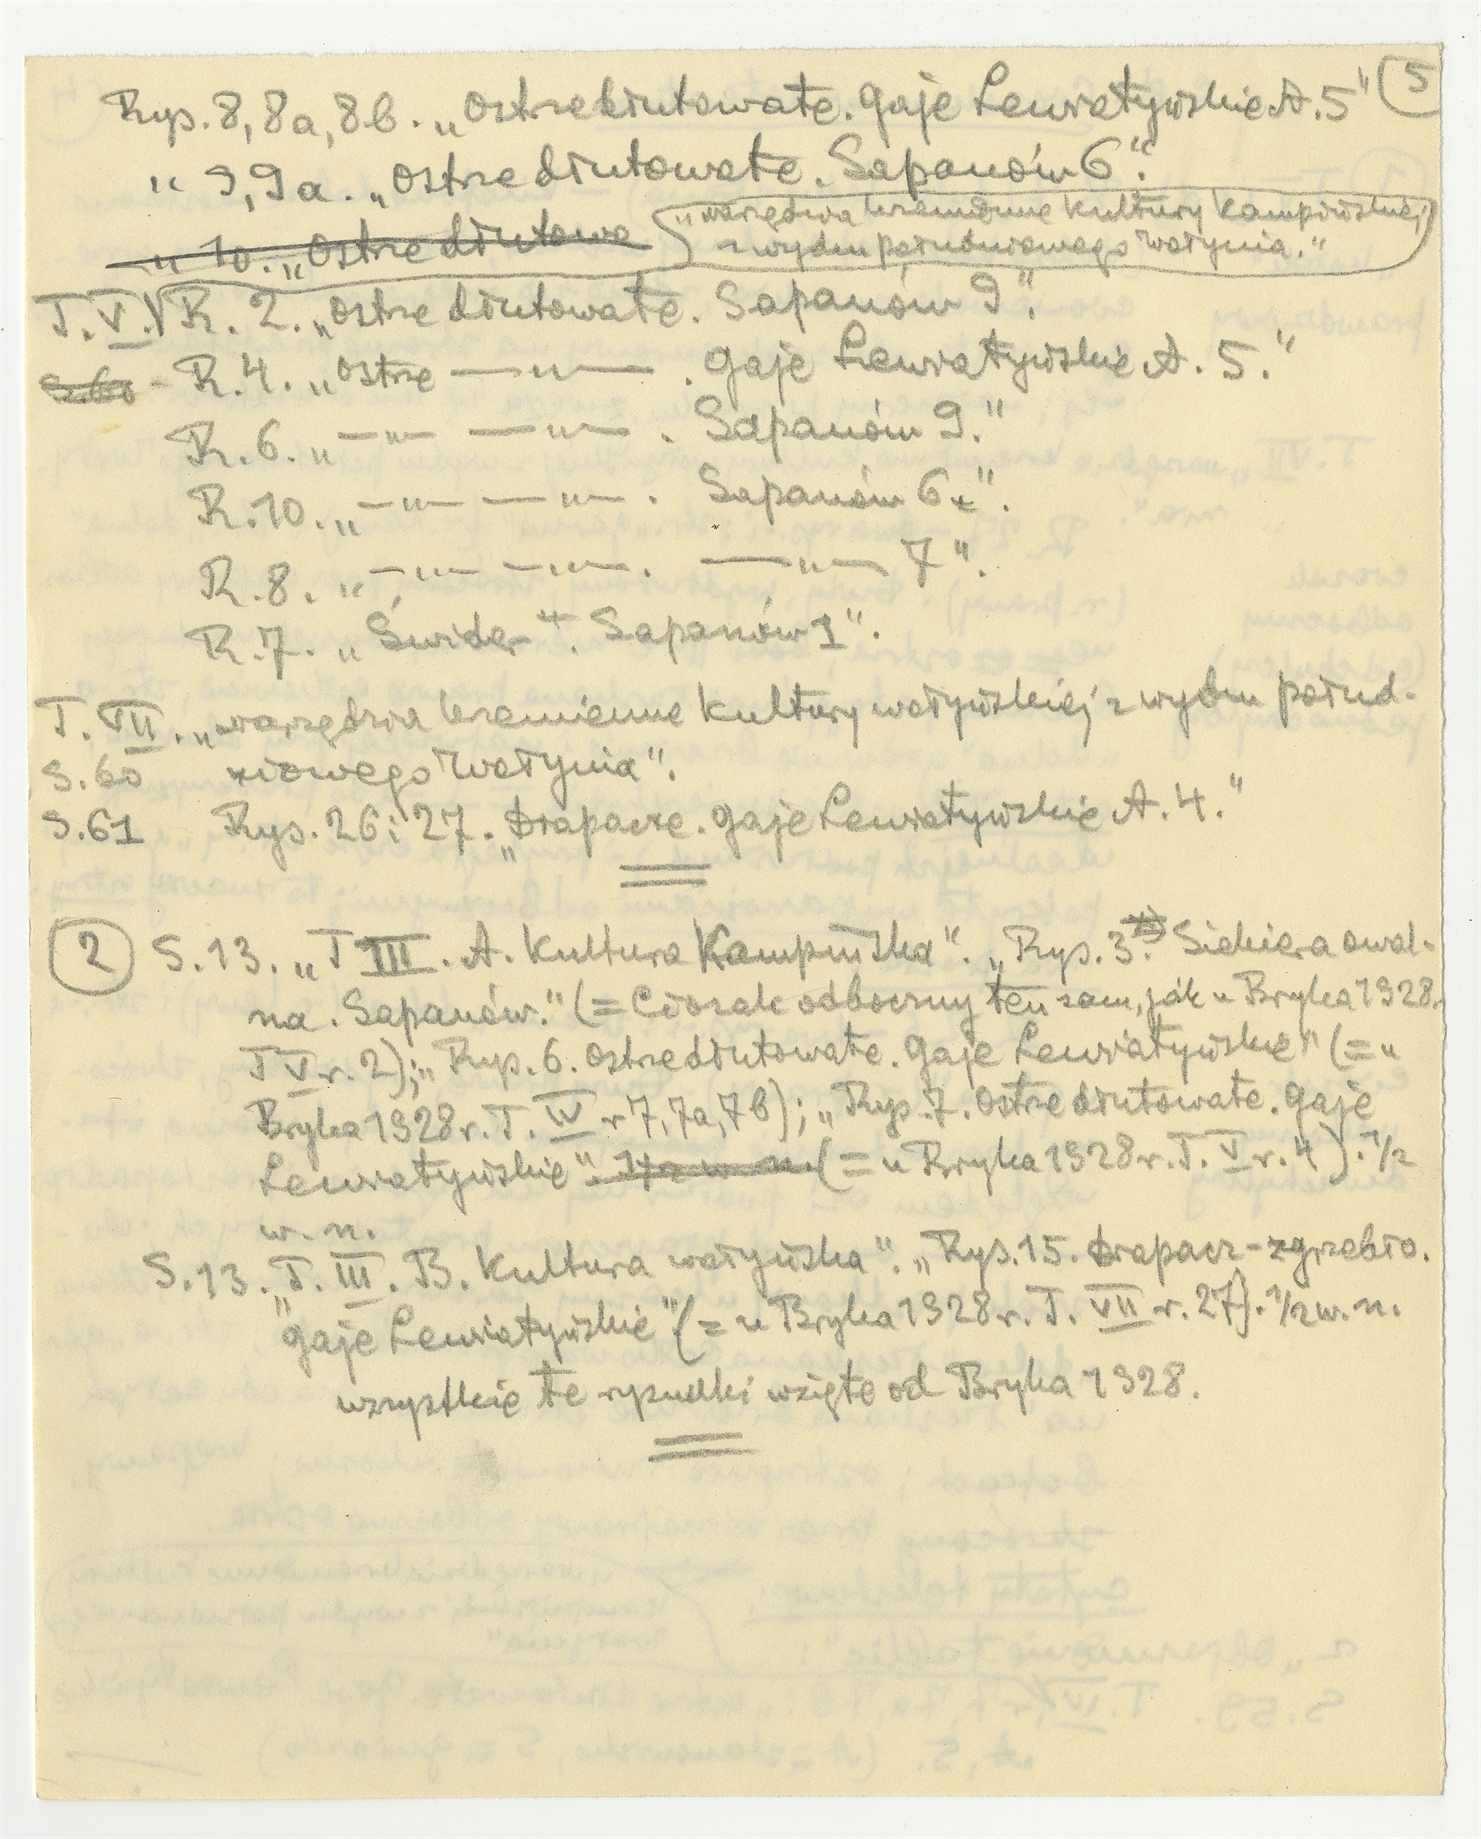 5
Rys. 8, 8a, 8b. „Ostrze dłutowate. Gaje Lewiatyńskie A. 5"
" 9, 9a. „Ostrze dłutowate. Sapanów 6".
" 10. „Ostrze dłutowa
„narzędzia krzemienne kultury kampińskiej
z wydm południowego Wołynia."
T. V. R. 2. „Ostrze dłutowate. Sapanów 9".
S. 60 - R. 4. „Ostrze —"— . Gaje Lewiatyńskie A. 5."
R. 6. „—"— —"— . Sapanów 9."
R. 10. „—"— —"— . Sapanów 6".
R. 8. „—"— —"— . —"— 7".
R. 7. „Świder". Sapanów 1".
T. VII. „narzędzia krzemienne kultury wołyńskiej z wydm połud-
S. 60 niowego Wołynia".
S. 61 Rys. 26 i 27. „Drapacze. Gaje Lewiatyńskie A. 4."
2 S. 13. „T III. A. Kultura Kampińska". „Rys. 3. Siekiera owal-
na. Sapanów." (= Ciosak odboczny ten sam, jak u Bryka 1928.
T V r. 2); „Rys. 6. Ostrze dłutowate. Gaje Lewiatyńskie" (= u
Bryka 1928 r. T. IV r 7, 7a, 7b); „Rys. 7. Ostrze dłutowate. Gaje
Lewiatyńskie". 1/2 w. n. (= u Bryka 1928 r. T. V r. 4). 1/2
w. n.
S. 13. „T. III. B. Kultura wołyńska". „Rys. 15. Drapacz-zgrzebło.
Gaje Lewiatyńskie" (= u Bryka 1928 r. T. VII r. 27). 1/2 w. n.
wszystkie te rysunki wzięte od Bryka 1928.